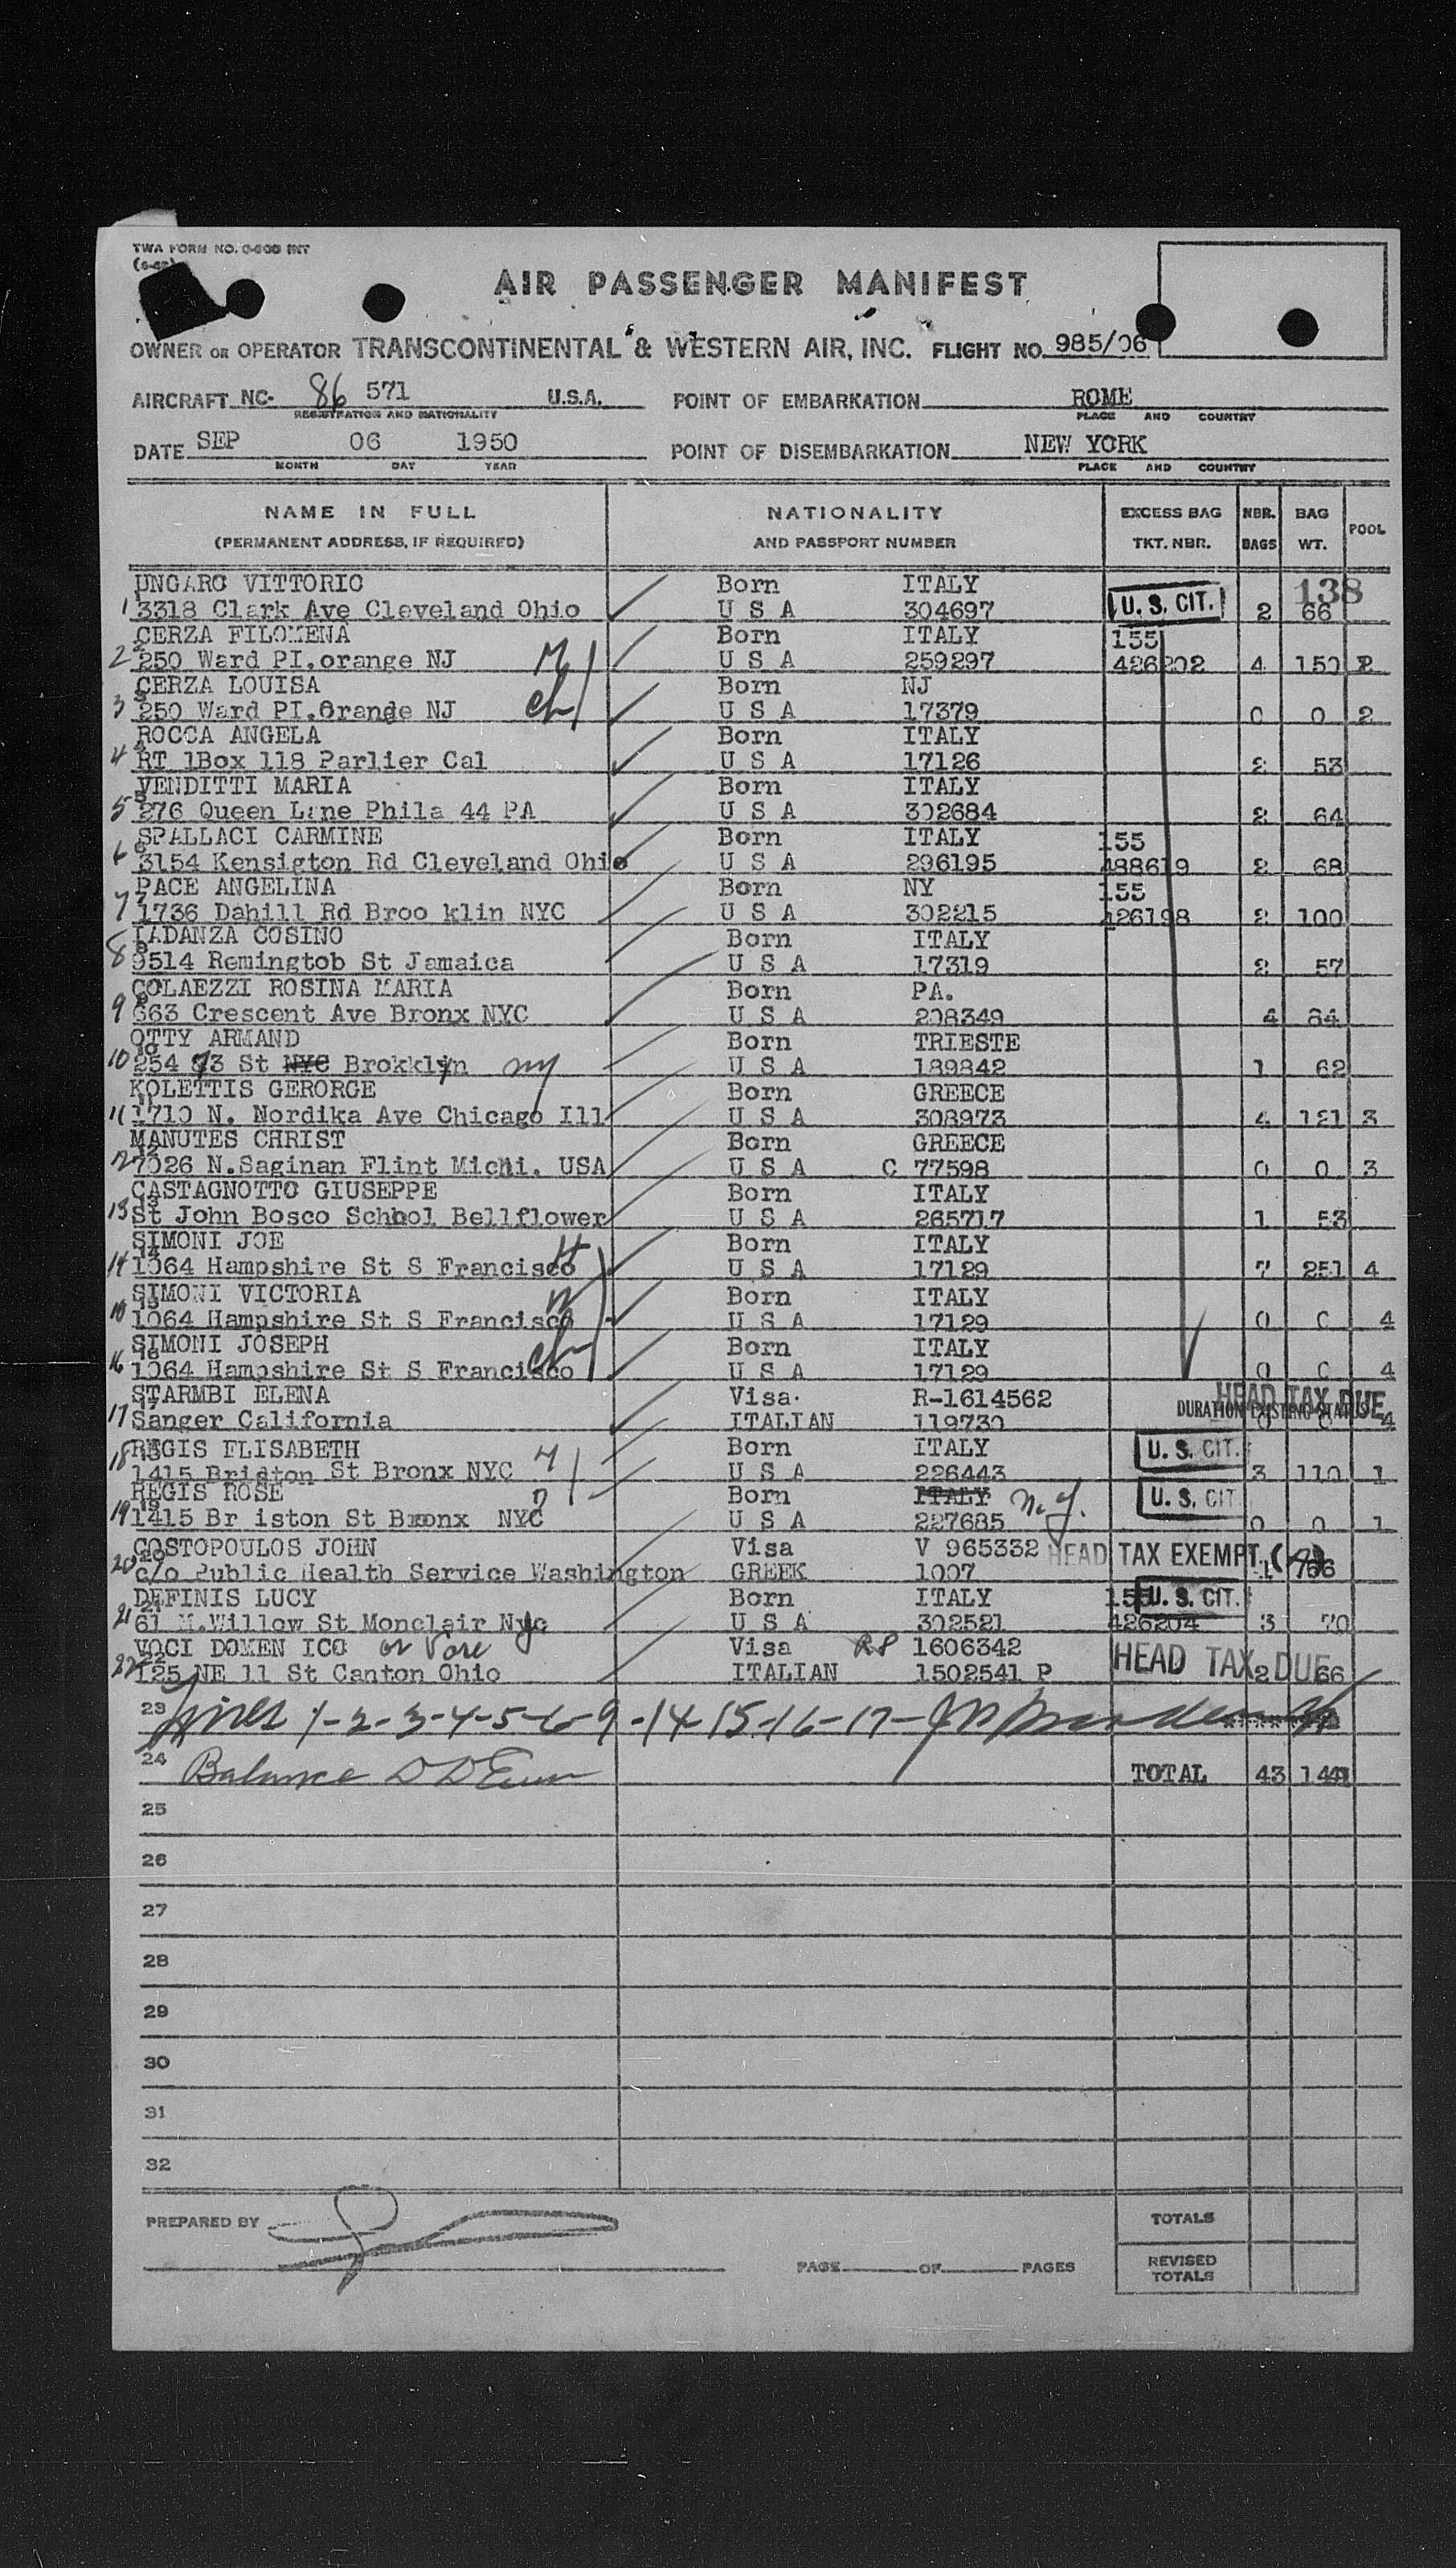 TWA FORM NO. 0-600 INT
AIR PASSENGER MANIFEST
OWNER OR OPERATOR TRANSCONTINENTAL & WESTERN AIR, INC. FLIGHT NO. 985/06
AIRCRAFT NC- 86 571 U.S.A. POINT OF EMBARKATION ROME
REGISTRATION AND NATIONALITY PLACE AND COUNTRY
DATE SEP 06 1950 POINT OF DISEMBARKATION NEW YORK
MONTH DAY YEAR PLACE AND COUNTRY
NAME IN FULL NATIONALITY EXCESS BAG NBR. BAG POOL
(PERMANENT ADDRESS, IF REQUIRED) AND PASSPORT NUMBER TKT. NBR. BAGS WT.
UNGARO VITTORIO Born ITALY 138
1 3318 Clark Ave Cleveland Ohio U S A 304697 U. S. CIT. 2 66
CERZA FILOMENA Born ITALY 155
2 250 Ward PI.orange NJ M U S A 259297 426202 4 150 2
CERZA LOUISA Born NJ
3 250 Ward PI.Orande NJ ch U S A 17379 0 0 2
ROCCA ANGELA Born ITALY
4 RT 1Box 118 Parlier Cal U S A 17126 2 53
VENDITTI MARIA Born ITALY
5 276 Queen Lane Phila 44 PA U S A 302684 2 64
SPALLACI CARMINE Born ITALY 155
6 3154 Kensigton Rd Cleveland Ohio U S A 296195 488619 2 68
PACE ANGELINA Born NY 155
7 1736 Dahill Rd Broo klin NYC U S A 302215 426198 2 100
IADANZA COSINO Born ITALY
8 9514 Remingtob St Jamaica U S A 17319 2 57
COLAEZZI ROSINA MARIA Born PA.
9 663 Crescent Ave Bronx NYC U S A 208349 4 84
OTTY ARMAND Born TRIESTE
10 254 73 St NYC Brokklyn ny U S A 189842 1 62
KOLETTIS GERORGE Born GREECE
11 1710 N. Nordika Ave Chicago Ill U S A 308973 4 121 3
MANUTES CHRIST Born GREECE
12 7026 N.Saginan Flint Michi. USA U S A C 77598 0 0 3
CASTAGNOTTO GIUSEPPE Born ITALY
13 St John Bosco School Bellflower U S A 265717 1 53
SIMONI JOE H Born ITALY
14 1064 Hampshire St S Francisco U S A 17129 7 251 4
SIMONI VICTORIA W Born ITALY
15 1064 Hampshire St S Francisco U S A 17129 0 0 4
SIMONI JOSEPH ch Born ITALY
16 1064 Hampshire St S Francisco U S A 17129 0 0 4
STARMBI ELENA Visa. R-1614562 HEAD TAX DUE
17 Sanger California ITALIAN 119730 DURATION EXISTING STATUS 4
REGIS ELISABETH Born ITALY U. S. CIT.
18 1415 Bridton St Bronx NYC U S A 226443 3 110 1
REGIS ROSE Born ITALY N.Y. U. S. CIT.
19 1415 Br iston St Bronx NYC U S A 227685 0 0 1
COSTOPOULOS JOHN Visa V 965332 HEAD TAX EXEMPT
20 c/o Public Health Service Washington GREEK 1007 1 66
DEFINIS LUCY Born ITALY 155 U. S. CIT.
21 61 M.Willow St Monclair U S A 302521 426204 3 70
VOCI DOMEN ICO or Visa 1606342 HEAD TAX DUE
22 125 NE 11 St Canton Ohio ITALIAN 1502541 P 2 66
23 Lines 1-2-3-4-5-6-9-14-15-16-17-
24 Balance TOTAL 43
25
26
27
28
29
30
31
32
PREPARED BY TOTALS
PAGE OF PAGES REVISED TOTALS